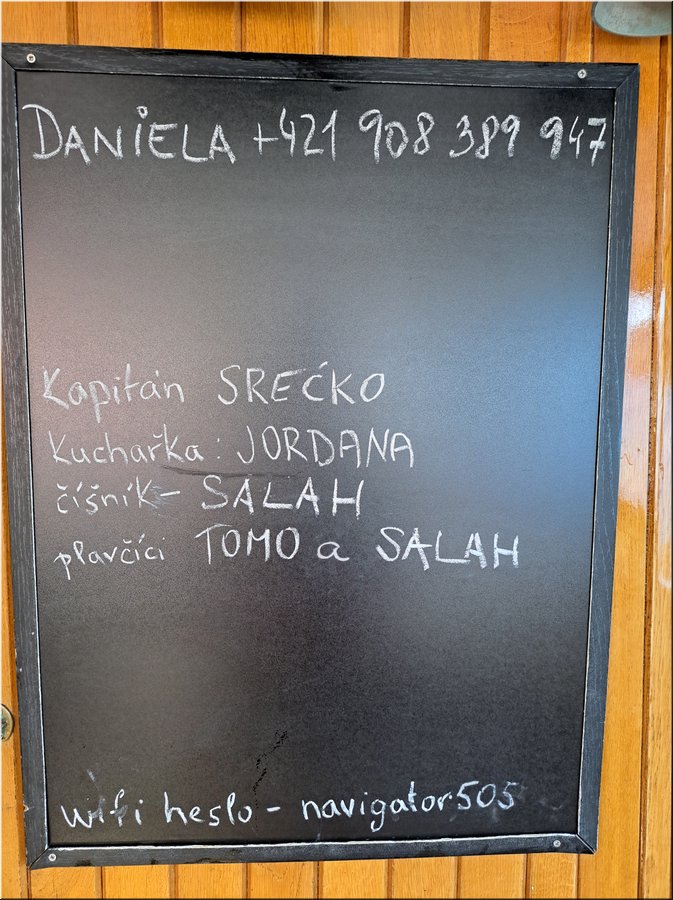 DANiELA +421 908 389 947
Kapitán SREĆKO
Kuchařka: JORDANA
číšník - SALAH
plavčíci TOMO a SALAH
wifi heslo - navigator505